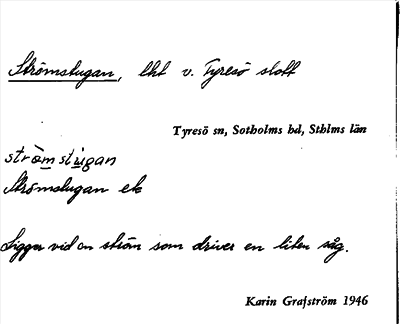 Strömstugan, lht v. Tyresö slott
Tyresö sn, Sotholms hd, Sthlms län
strömstugan
Strömstugan ek
Ligger vid en ström som driver en liten såg.
Karin Grafström 1946